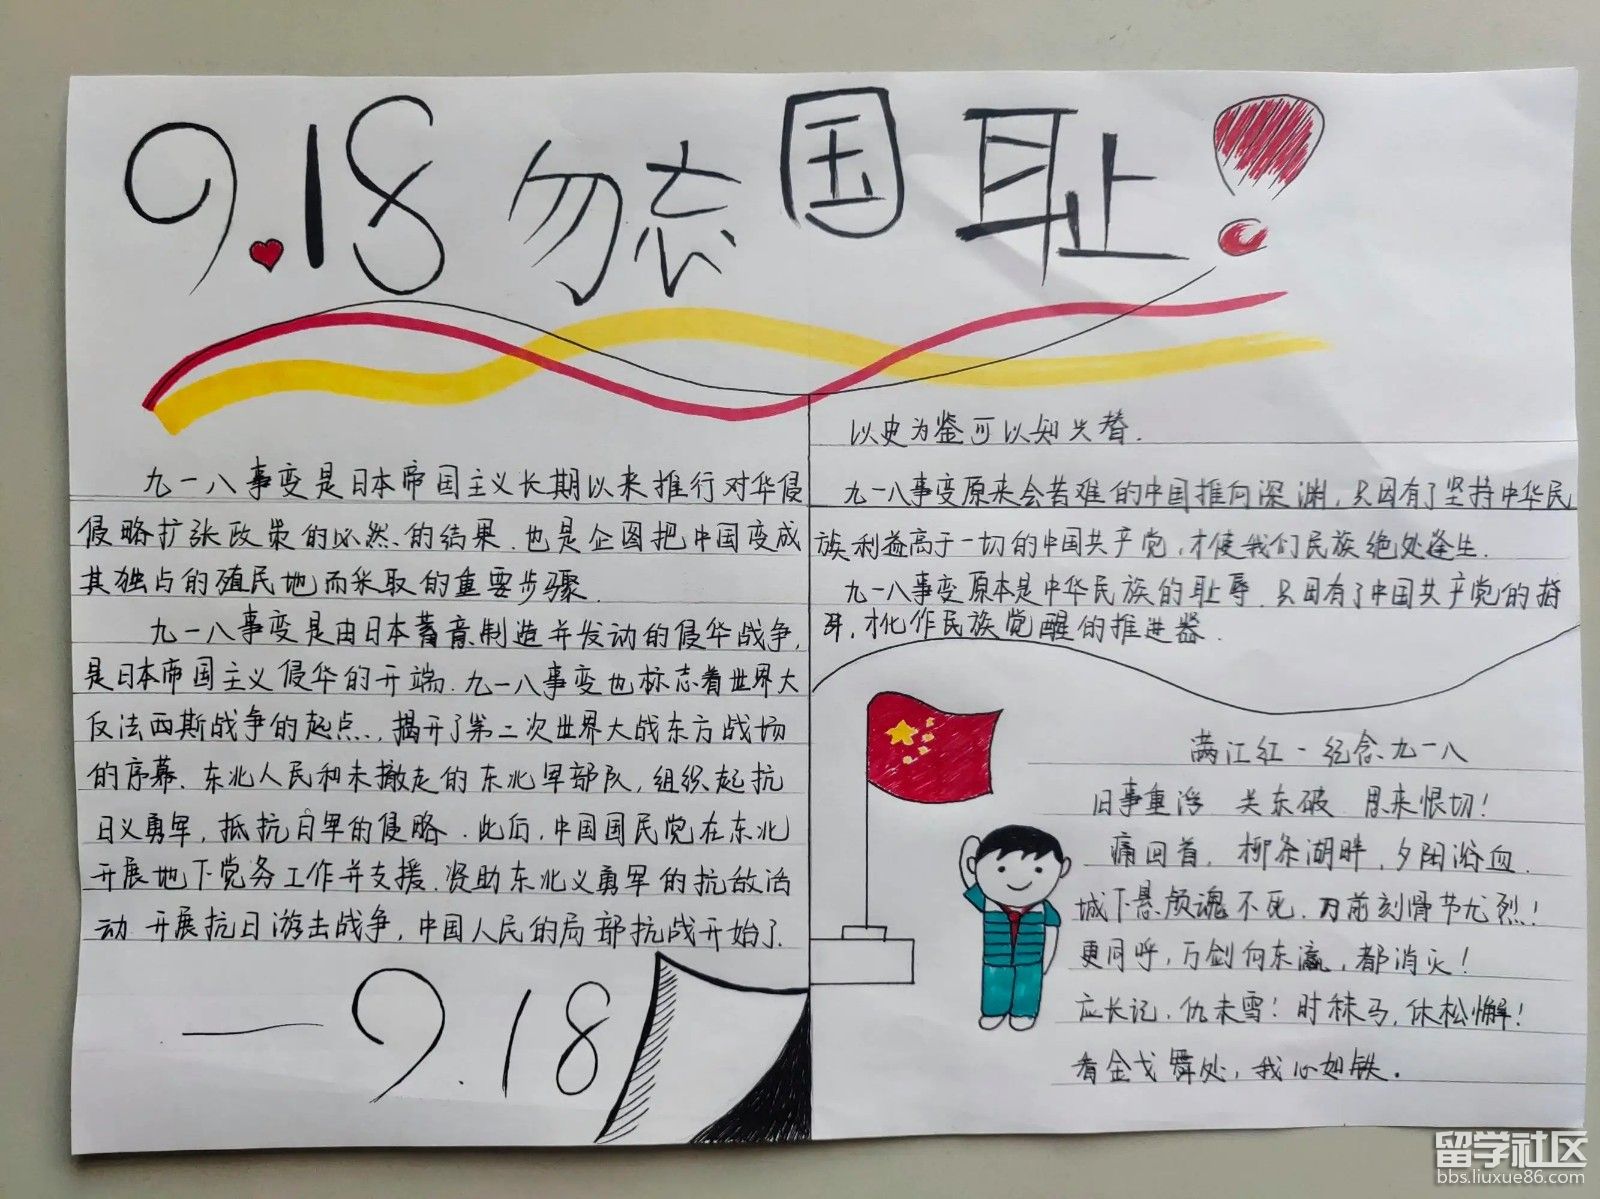 9.18 勿忘国耻!
九一八事变是日本帝国主义长期以来推行对华侵
侵略扩张政策的必然的结果.也是企图把中国变成
其独占的殖民地而采取的重要步骤.
九一八事变是由日本蓄意制造并发动的侵华战争,
是日本帝国主义侵华的开端.九一八事变也标志着世界大
反法西斯战争的起点.,揭开了第二次世界大战东方战场
的序幕.东北人民和未撤走的东北军部队,组织起抗
日义勇军,抵抗日军的侵略.此后,中国国民党在东北
开展地下党务工作并支援.资助东北义勇军的抗敌活
动 开展抗日游击战争,中国人民的局部抗战开始了.
—9.18
以史为鉴可以知兴替.
九一八事变原来会昔难的中国推向深渊,只因有了坚持中华民
族利益高于一切的中国共产党,才使我们民族绝处逢生.
九一八事变原本是中华民族的耻辱.只因有了中国共产党的
,才化作民族觉醒的推进器.
满江红-纪念九一八
旧事重浮 关东破 思来恨切!
痛回首,柳条湖畔,夕阳浴血.
城下悬颅魂不死.刀前刻骨节尤烈!
更同呼,万剑向东瀛,都消灭!
应长记,仇未雪!时秣马,休松懈!
看金戈舞处,我心如铁.
留学社区
bbs.liuxue86.com